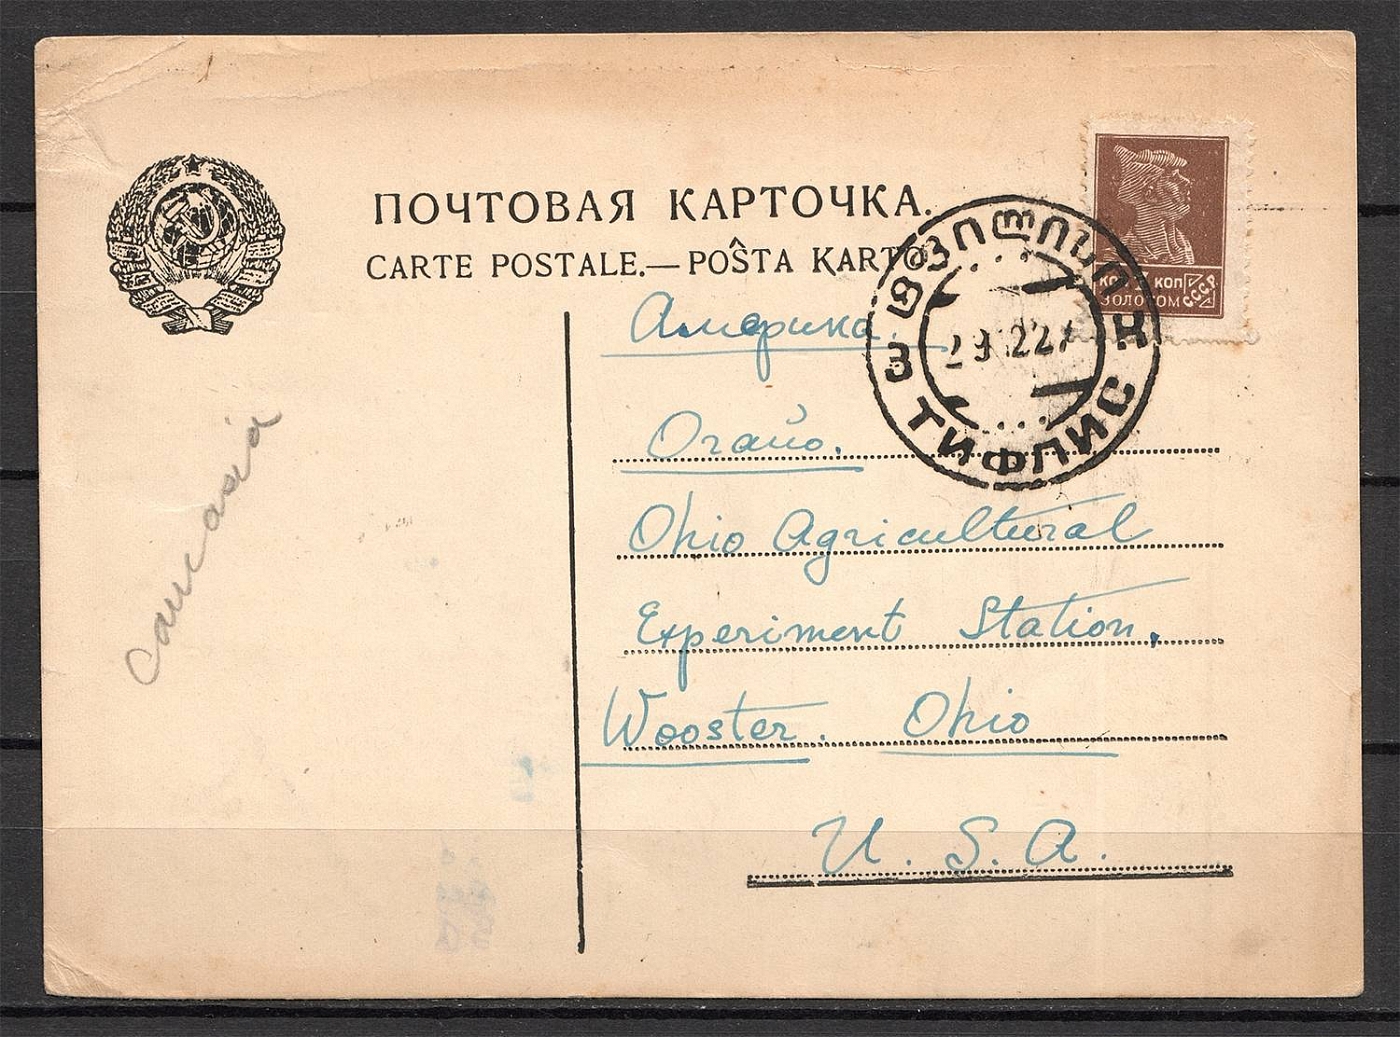 ПОЧТОВАЯ КАРТОЧКА.
CARTE POSTALE.—POŜTA KARTO
КОП 7 КОП
ЗОЛОТОМ СССР
ТФИЛИСИ
ТИФЛИС
Америка.
Огайо.
Ohio Agricultural
Experiment Station,
Wooster. Ohio
U.S.A.
Caucasia